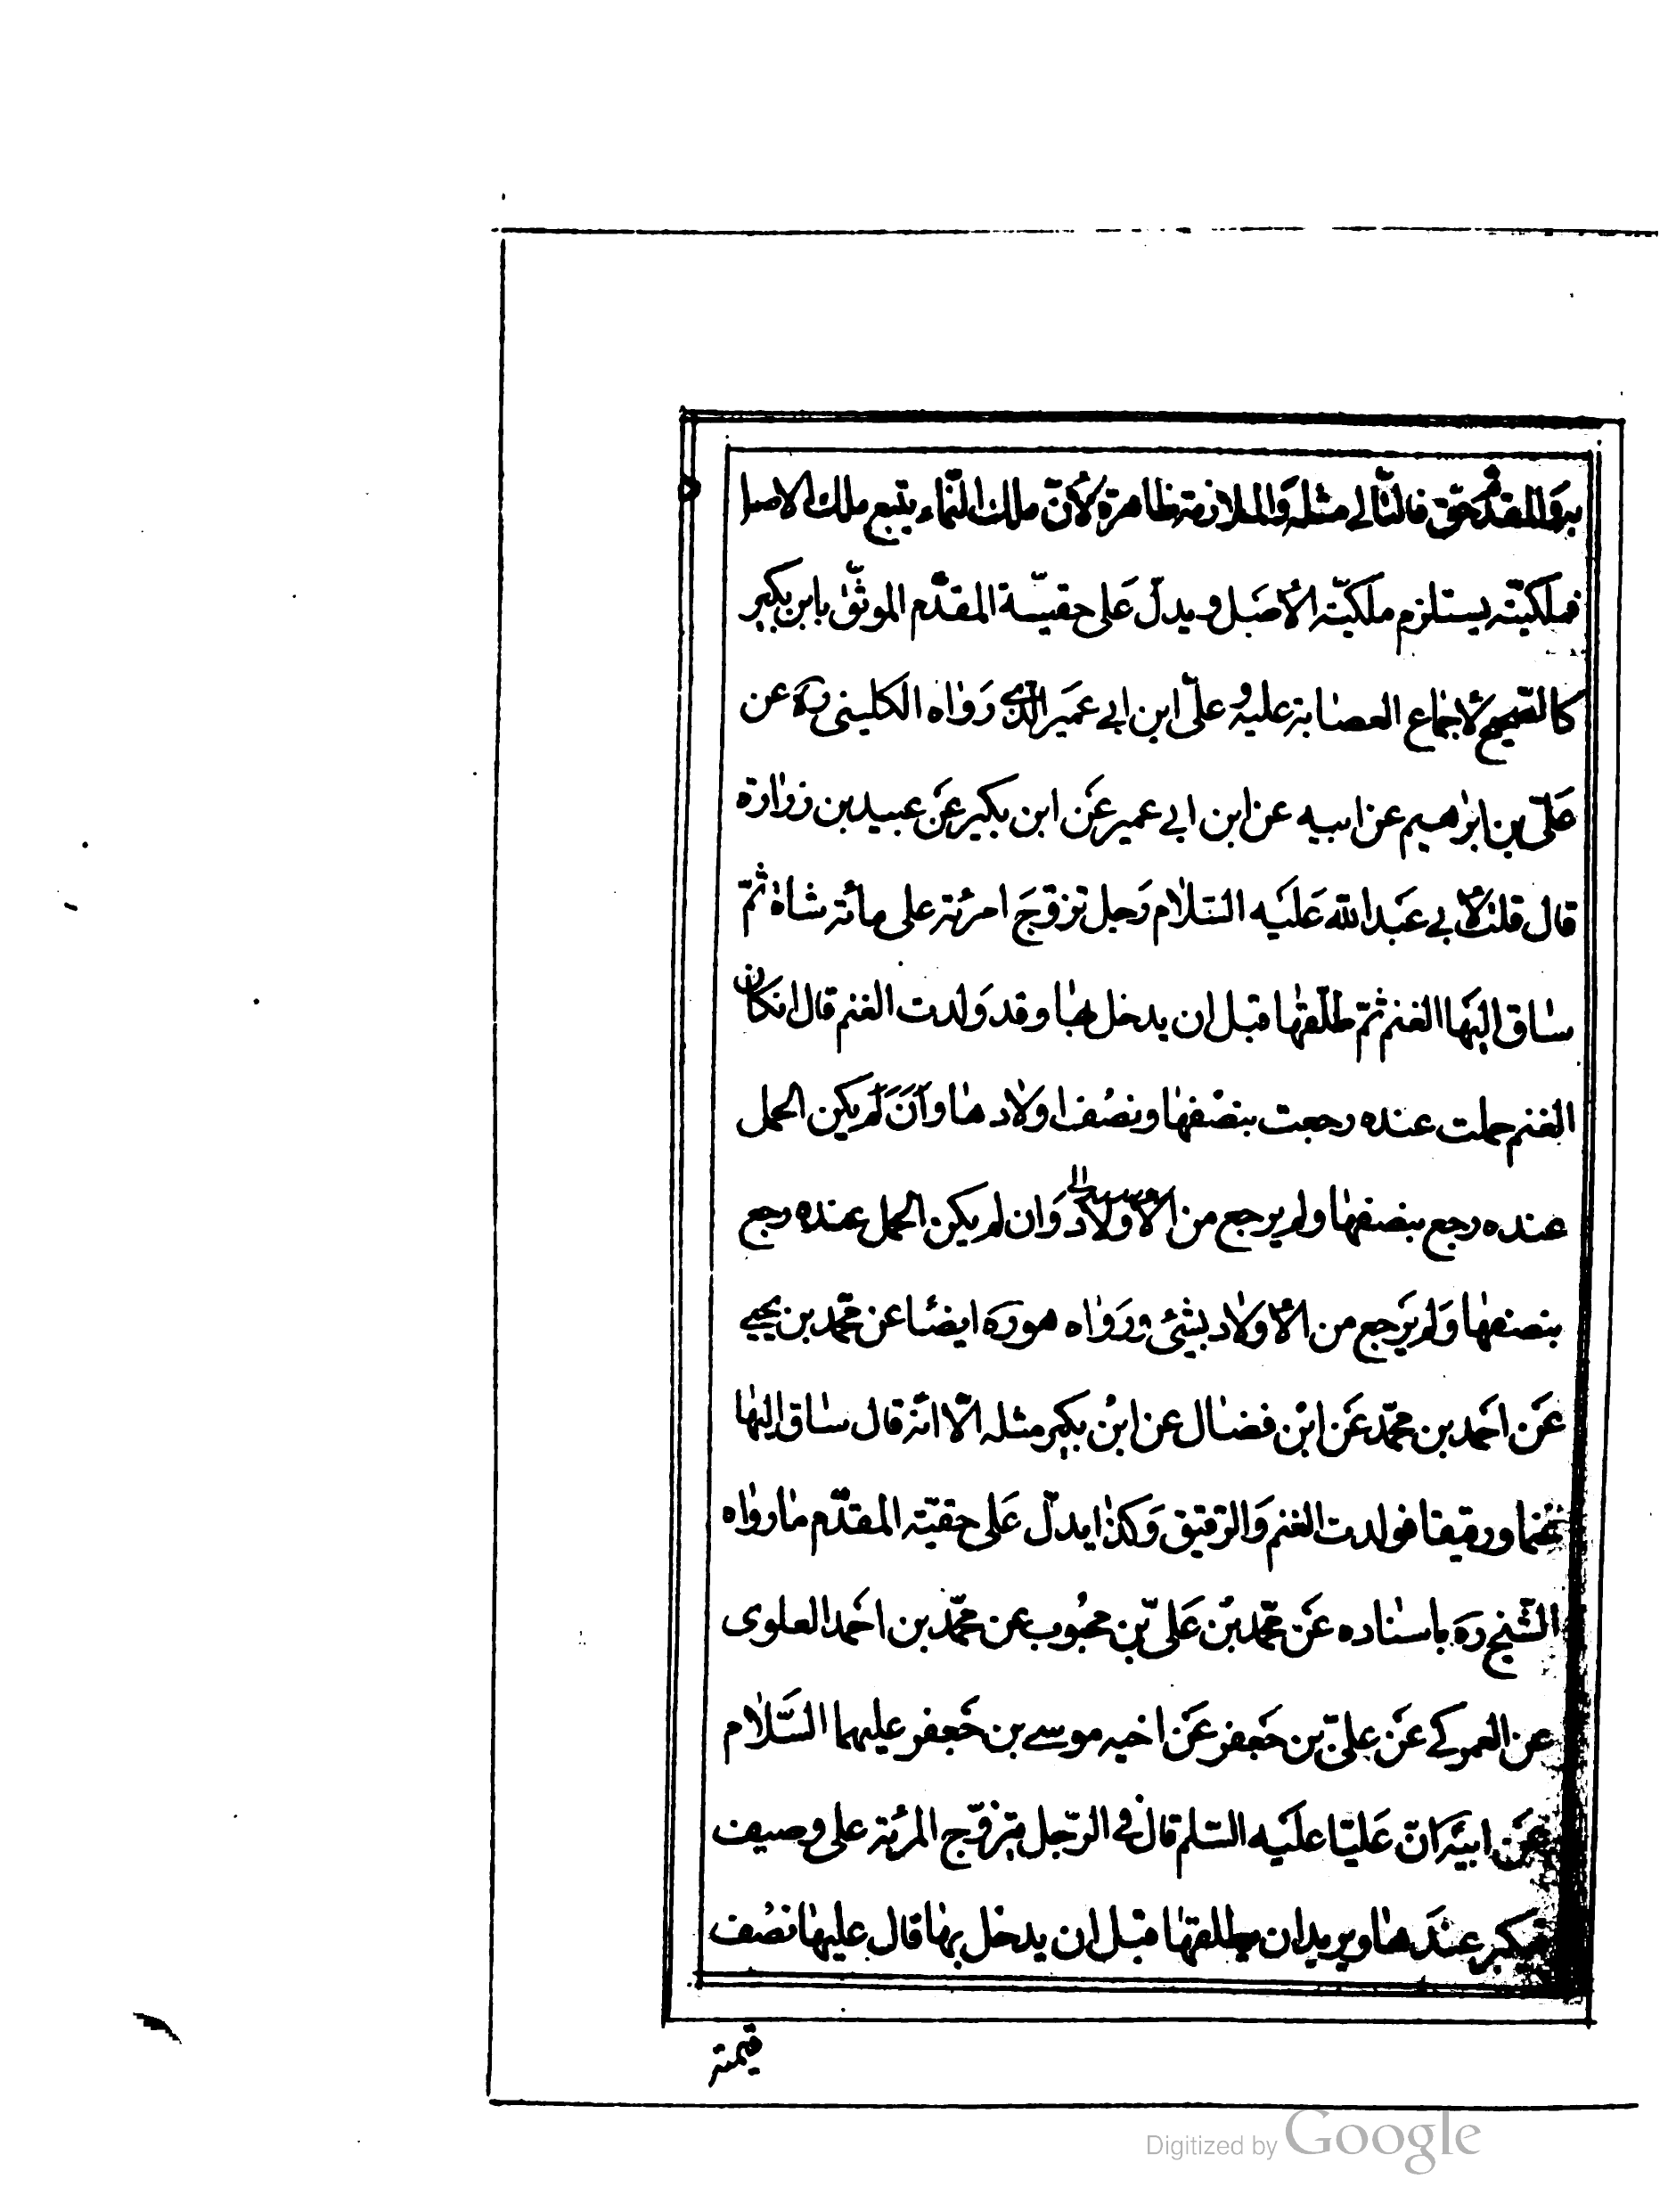 به والمقدّم حقّ فالتّالي مثله والملازمة ظاهرة لأنّ ملك النّماء يتبع ملك الاصل
فملكيّته يستلزم ملكيّة الأصل ويدلّ على حقيّة المقدّم الموثّق بابن بكير
كالصّحيح لاجماع العصابة عليه وعلى ابن ابي عمير الّذي رواه الكليني ره عن
عليّ بن ابراهيم عن ابيه عن ابن ابي عمير عن ابن بكير عن عبيد بن زرارة
قال قلت لأبي عبد الله عليه السّلام رجل تزوّج امرئة على مائة شاة ثمّ
ساق اليها الغنم ثمّ طلّقها قبل ان يدخل بها وقد ولدت الغنم قال انكان
الغنم حملت عنده رجعت بنصفها ونصف اولادها وان لم يكن الحمل
عنده رجع بنصفها ولم يرجع من الأولاد وان لم يكن الحمل عنده رجع
بنصفها ولم يرجع من الأولاد بشئ ورواه هو ره ايضا عن محمّد بن يحيى
عن احمد بن محمّد عن ابن فضال عن ابن بكير مثله الّا انّه قال ساق اليها
غنما ورقيقا فولدت الغنم والرّقيق وكذا يدلّ على حقيّة المقدّم ما رواه
الشّيخ ره باسناده عن محمّد بن عليّ بن محبوب عن محمّد بن احمد العلوى
عن العمركي عن عليّ بن جعفر عن اخيه موسى بن جعفر عليهما السّلام
عن ابيه انّ عليّا عليه السّلم قال في الرّجل يتزوّج المرئة على وصيف
فيكبر عندها ويريد ان يطلقها قبل ان يدخل بها قال عليها نصف
قيمته
Digitized by Google